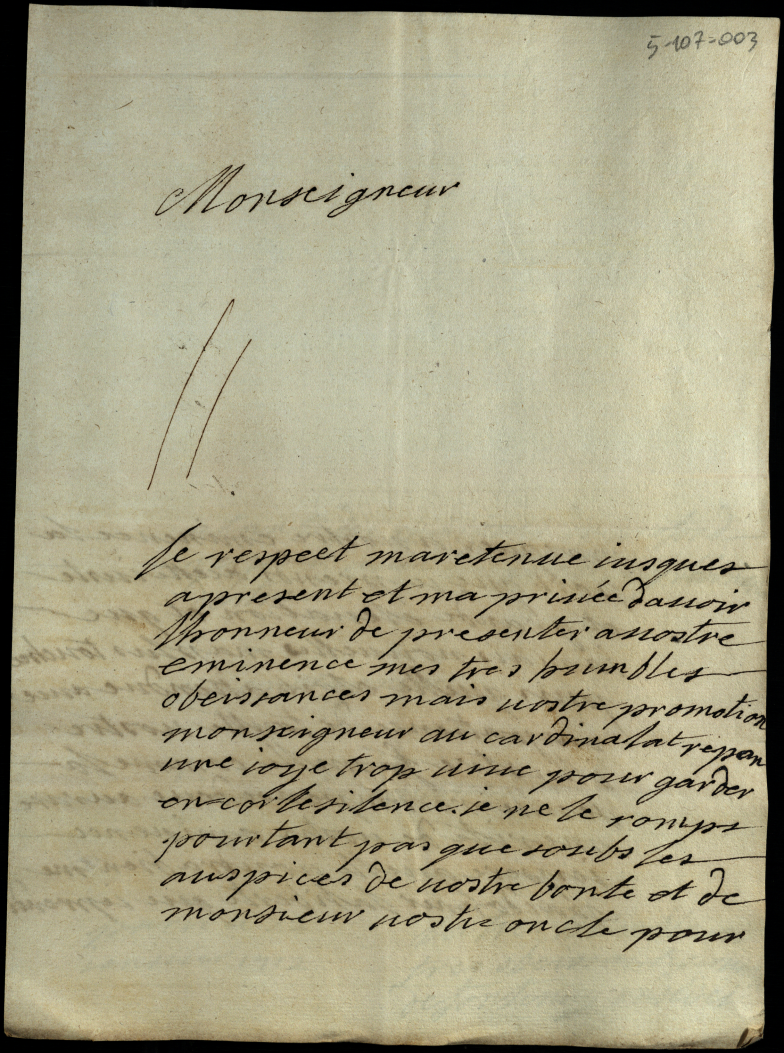 5-107-003
Monseigneur
le respect maretenue iusques
apresent et ma priuée dauoir
lhonneur de presenter auostre
eminence mes tres humbles
obeissances mais uostre promotion
monseigneur au cardinalat repan
une ioye trop uiue pour garder
encorlesilence. ie ne le romps
pourtant pas que soubs les
auspices de uostre bonte et de
monsieur uostre oncle pour